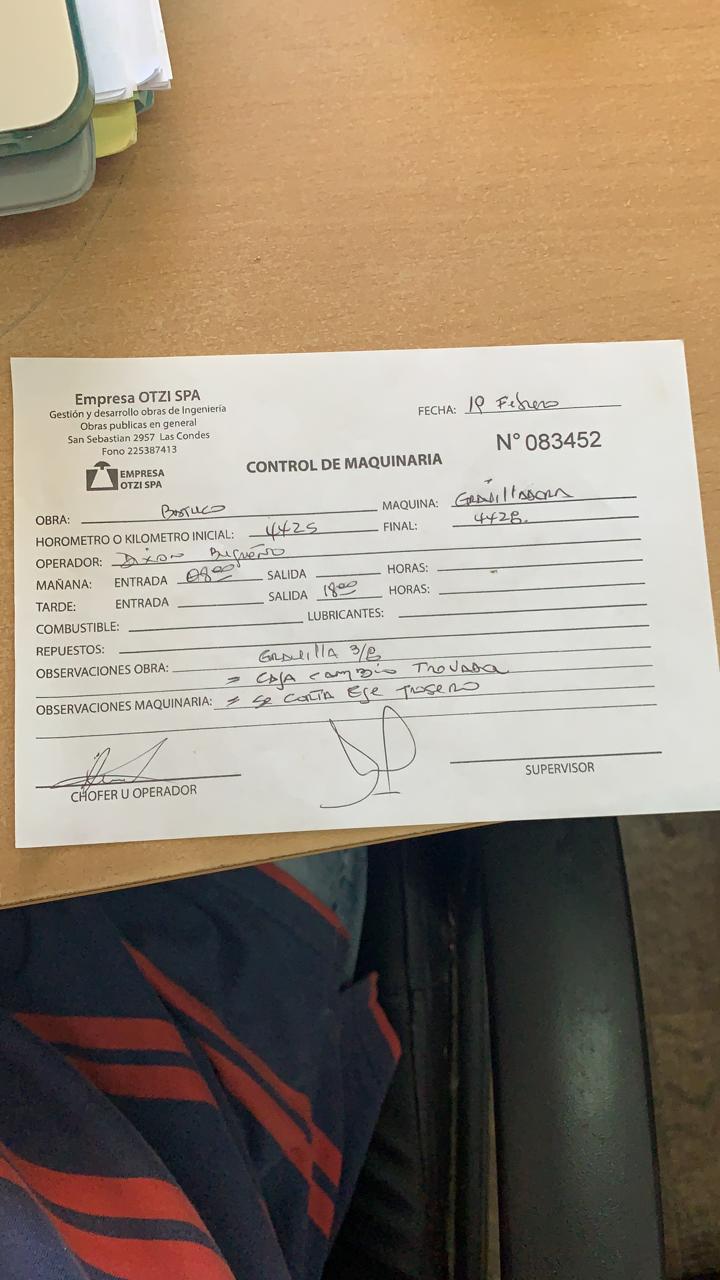 Empresa OTZI SPA
Gestión y desarrollo obras de Ingeniería
Obras publicas en general
San Sebastian 2957 Las Condes
Fono 225387413
EMPRESA
OTZI SPA
FECHA: 19 Febrero
N° 083452
CONTROL DE MAQUINARIA
OBRA: Batuco MAQUINA: Gravilladora
HOROMETRO O KILOMETRO INICIAL: 4425 FINAL: 4428.
OPERADOR: Dixon
MAÑANA: ENTRADA 08:00 SALIDA HORAS:
TARDE: ENTRADA SALIDA 18:00 HORAS:
COMBUSTIBLE: LUBRICANTES:
REPUESTOS:
OBSERVACIONES OBRA: Gravilla 3/8
= Caja cambio trovada
OBSERVACIONES MAQUINARIA: = se corta Eje Trasero
CHOFER U OPERADOR
SUPERVISOR